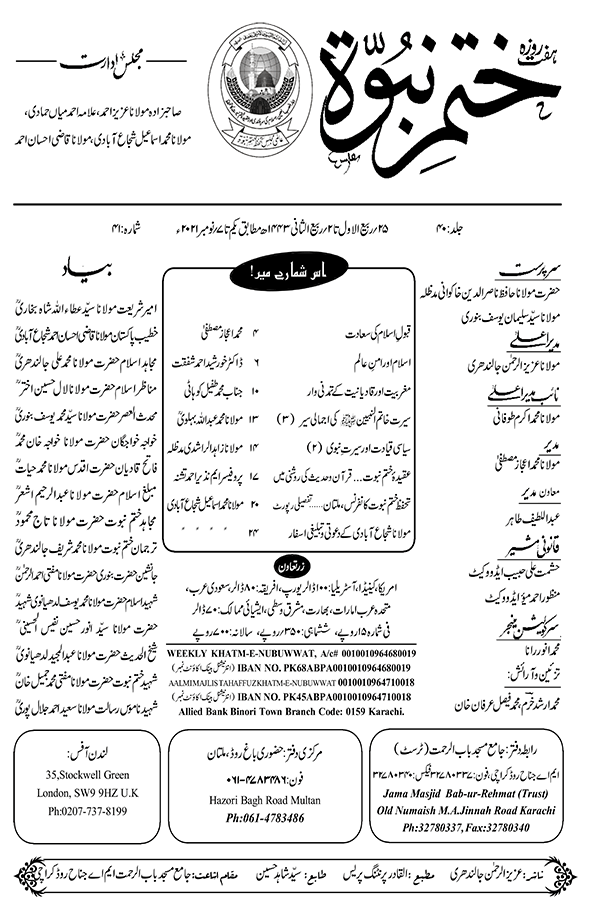 ہفت روزہ
ختم نبوۃ
مجلس ادارت
صاحبزادہ مولانا عزیز احمد، علامہ احمد میاں حمادی،
مولانا محمد اسماعیل شجاع آبادی، مولانا قاضی احسان احمد
جلد: ۴۰
۲۵/ ربیع الاول تا ۲/ ربیع الثانی ۱۴۴۳ھ مطابق یکم تا ۷/ نومبر ۲۰۲۱ء
شمارہ: ۴۱
سرپرست
حضرت مولانا حافظ ناصر الدین خاکوانی مدظلہ
مولانا سید سلیمان یوسف بنوری
مدیر اعلیٰ
مولانا عزیز الرحمٰن جالندھری
نائب مدیر اعلیٰ
مولانا محمد اکرم طوفانی
مدیر
مولانا محمد اعجاز مصطفیٰ
معاون مدیر
عبداللطیف طاہر
قانونی مشیر
حشمت علی حبیب ایڈووکیٹ
منظور احمد میؤ ایڈووکیٹ
سرکولیشن منیجر
محمد انور رانا
تزئین و آرائش:
محمد ارشد خرم، محمد فیصل عرفان خان
اس شمارے میں!
قبولِ اسلام کی سعادت ۴ محمد اعجاز مصطفیٰ
اسلام اور امنِ عالم ۶ ڈاکٹر خورشید احمد شفقت
مغربیت اور قادیانیت کے تمدنی وار ۱۰ جناب محمد طفیل کوہاٹی
سیرت خاتم النبیین ﷺ کی اجمالی سیر (۳) ۱۳ مولانا محمد عبداللہ بہلویؒ
سیاسی قیادت اور سیرت نبوی (۲) ۱۴ مولانا زاہد الراشدی مدظلہ
عقیدۂ ختم نبوت... قرآن و حدیث کی روشنی میں ۱۷ پروفیسر ایم نذیر احمد تشنہ
تحفظ ختم نبوت کانفرنس، ملتان...... تفصیلی رپورٹ ۲۰ مولانا محمد اسماعیل شجاع آبادی
مولانا شجاع آبادی کے دعوتی و تبلیغی اسفار ۲۴ " " " "
زرتعاون
امریکا، کینیڈا، آسٹریلیا: ۱۰۰ ڈالر یورپ، افریقہ: ۸۰ ڈالر، سعودی عرب،
متحدہ عرب امارات، بھارت، مشرق وسطیٰ، ایشیائی ممالک: ۷۰ ڈالر
فی شمارہ ۱۵ روپے، ششماہی: ۳۵۰ روپے، سالانہ: ۷۰۰ روپے
WEEKLY KHATM-E-NUBUWWAT, A/c# 0010010964680019
IBAN NO. PK68ABPA0010010964680019 (انٹرنیشنل بینک اکاؤنٹ نمبر)
AALMIMAJLISTAHAFFUZKHATM-E-NUBUWWAT 0010010964710018
IBAN NO. PK45ABPA0010010964710018 (انٹرنیشنل بینک اکاؤنٹ نمبر)
Allied Bank Binori Town Branch Code: 0159 Karachi.
بیاد
امیر شریعت مولانا سید عطاء اللہ شاہ بخاریؒ
خطیب پاکستان مولانا قاضی احسان احمد شجاع آبادیؒ
مجاہد اسلام حضرت مولانا محمد علی جالندھریؒ
مناظر اسلام حضرت مولانا لال حسین اخترؒ
محدث العصر حضرت مولانا سید محمد یوسف بنوریؒ
خواجہ خواجگان حضرت مولانا خواجہ خان محمدؒ
فاتح قادیان حضرت اقدس مولانا محمد حیاتؒ
مبلغ اسلام حضرت مولانا عبدالرحیم اشعرؒ
مجاہد ختم نبوت حضرت مولانا تاج محمودؒ
ترجمان ختم نبوت مولانا محمد شریف جالندھریؒ
جانشین حضرت بنوری حضرت مولانا مفتی احمد الرحمٰنؒ
شہید اسلام حضرت مولانا محمد یوسف لدھیانوی شہیدؒ
حضرت مولانا سید انور حسین نفیس الحسینیؒ
شیخ الحدیث حضرت مولانا عبدالمجید لدھیانویؒ
شہید ختم نبوت حضرت مولانا مفتی محمد جمیل خانؒ
شہید ناموس رسالت مولانا سعید احمد جلال پوریؒ
رابطہ دفتر: جامع مسجد باب الرحمت (ٹرسٹ)
ایم اے جناح روڈ کراچی، فون: ۳۲۷۸۰۳۳۷ فیکس: ۳۲۷۸۰۳۴۰
Jama Masjid Bab-ur-Rehmat (Trust)
Old Numaish M.A.Jinnah Road Karachi
Ph:32780337, Fax:32780340
مرکزی دفتر: حضوری باغ روڈ، ملتان
فون: ۰۶۱-۴۷۸۳۴۸۶
Hazori Bagh Road Multan
Ph:061-4783486
لندن آفس:
35,Stockwell Green
London, SW9 9HZ U.K
Ph:0207-737-8199
ناشر: عزیز الرحمٰن جالندھری مطبع: القادر پرنٹنگ پریس طابع: سید شاہد حسین مقام اشاعت: جامع مسجد باب الرحمت ایم اے جناح روڈ کراچی